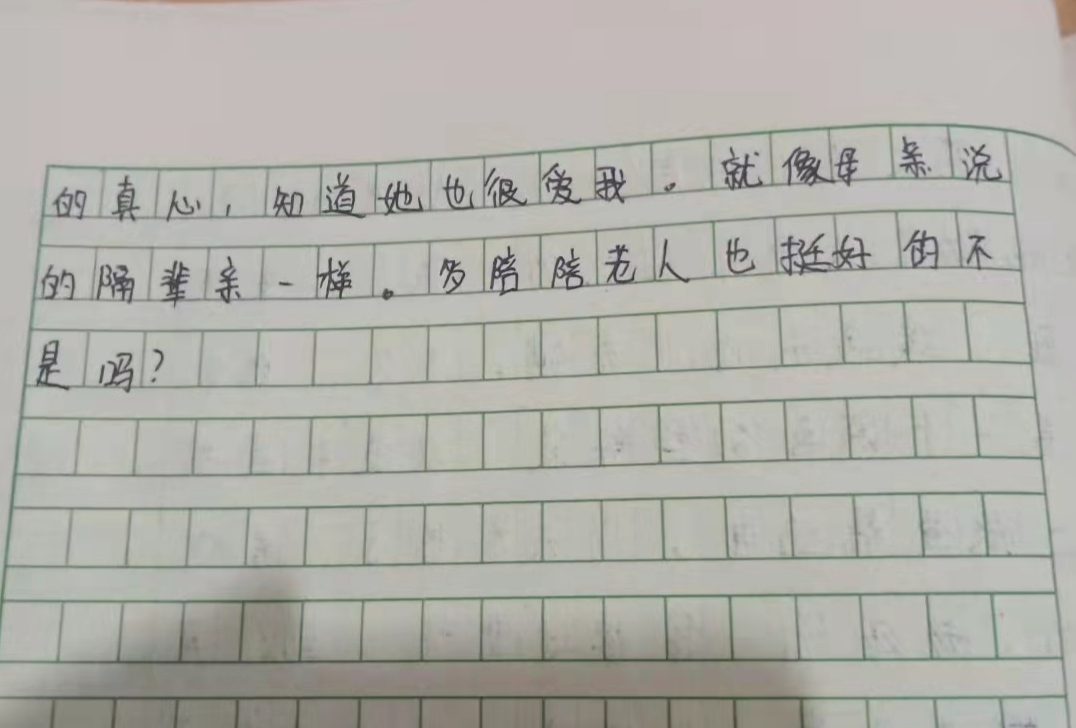 的真心，知道她也很爱我。就像母亲说
的隔辈亲一样。多陪陪老人也挺好的不
是吗？